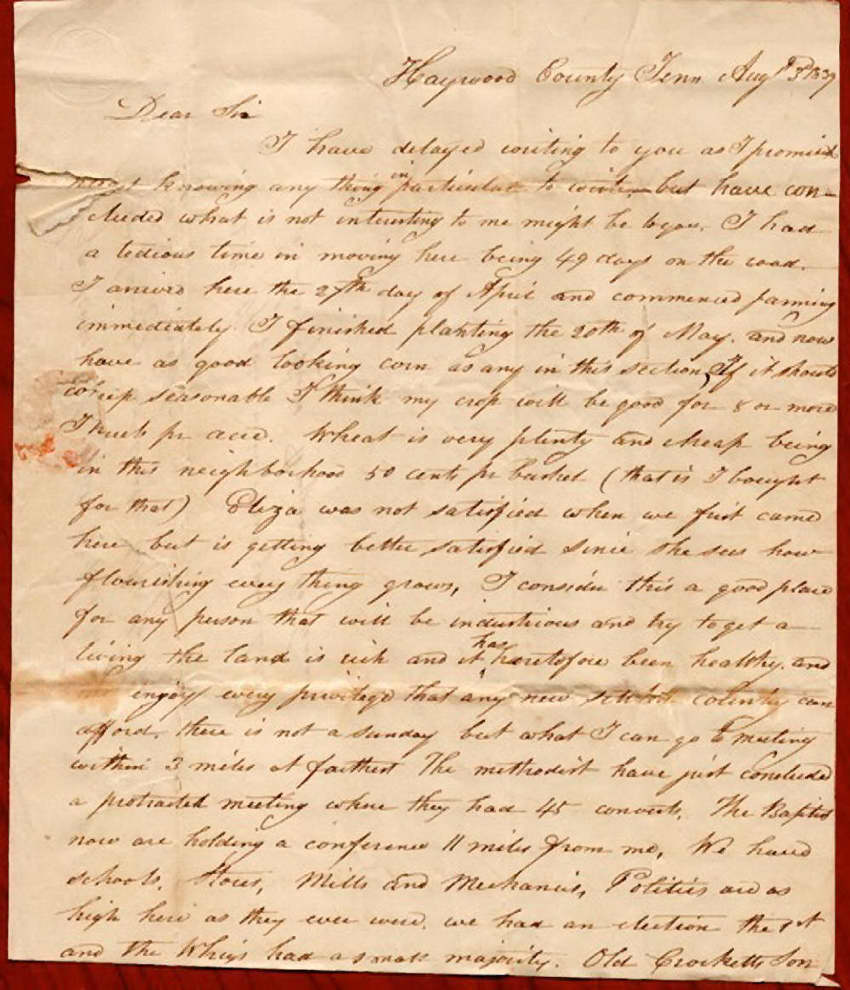 Haywood County Tenn Augt 3d 1839
Dear Sir
I have delayed writing to you as I promised
not knowing any thing in particular to write but have con-
cluded what is not interesting to me might be to you. I had
a tedious time in moving here being 49 days on the road.
I arrived here the 27th day of April and commenced farming
immediately. I finished planting the 20th of May. and now
have as good looking corn as any in this section, If it should
keep seasonable I think my crop will be good for 8 or more
pr acre. Wheat is very plenty and cheap being
in this neighborhood 50 cents pr bushel (that is I bought
for that) Eliza was not satisfied when we first came
here but is getting better satisfied since she sees how
flourishing every thing grows, I consider this a good place
for any person that will be industrious and try to get a
living the land is rich and it has heretofore been healthy. and
enjoy every privilege that any new settled country can
afford, there is not a sunday but what I can go to meeting
within 3 miles at farthest The methodist have just concluded
a protracted meeting where they had 45 converts, The Baptist
now are holding a conference 11 miles from me, We have
schools, Stores, Mills and Mechanics, Politics are as
high here as they ever were. we had an election the 1st
and the Whigs had a small majority. Old Crocketts Son